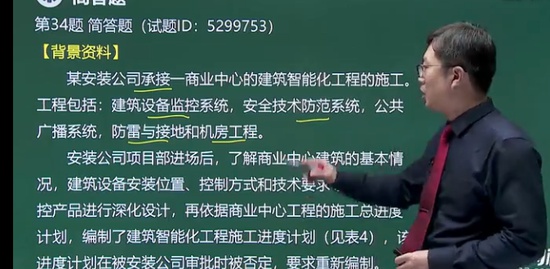 简答题
第34题 简答题（试题ID：5299753）
【背景资料】
某安装公司承接一商业中心的建筑智能化工程的施工。
工程包括：建筑设备监控系统，安全技术防范系统，公共
广播系统，防雷与接地和机房工程。
安装公司项目部进场后，了解商业中心建筑的基本情
况，建筑设备安装位置、控制方式和技术要求
控产品进行深化设计，再依据商业中心工程的施工总进度
计划，编制了建筑智能化工程施工进度计划（见表4），该
进度计划在被安装公司审批时被否定，要求重新编制。